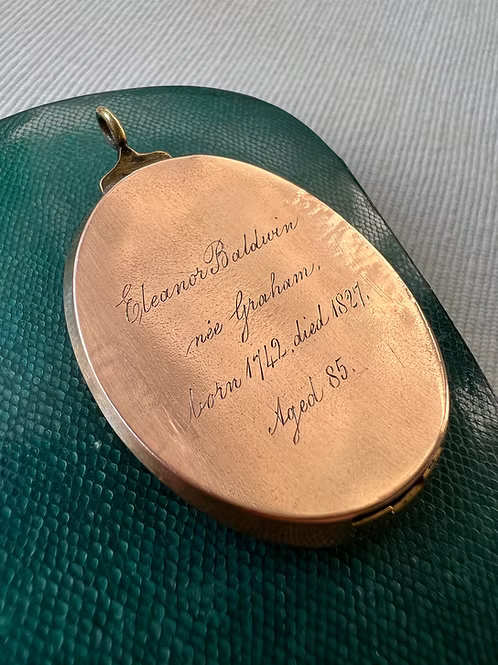 Eleanor Baldwin
née Graham,
born 1742, died 1827,
Aged 85.